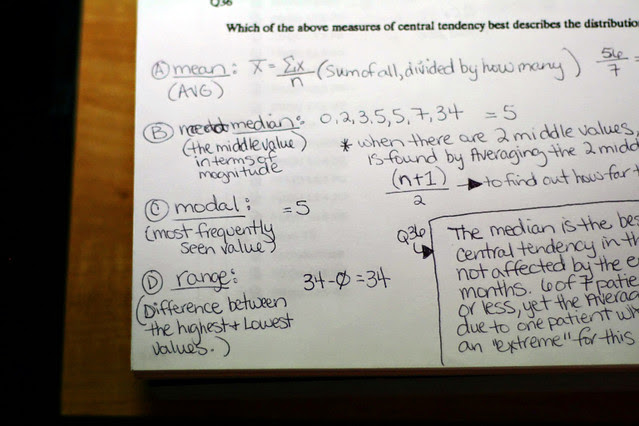 Q36
Which of the above measures of central tendency best describes the distributio
Ⓐ mean: X̄ = Σx/n (sum of all, divided by how many) 56/7 =
(AVG)
Ⓑ median: 0, 2, 3, 5, 5, 7, 34 = 5
(the middle value
in terms of
magnitude
* when there are 2 middle values,
is found by Averaging the 2 midd
(n+1)/2 → to find out how far t
Ⓒ modal: = 5
(most frequently
seen value)
Ⓓ range: 34-0 = 34
(Difference between
the highest + Lowest
values.)
Q36
The median is the bes
central tendency in th
not affected by the e
months. 6 of 7 patie
or less, yet the Averag
due to one patient wh
an "extreme" for this